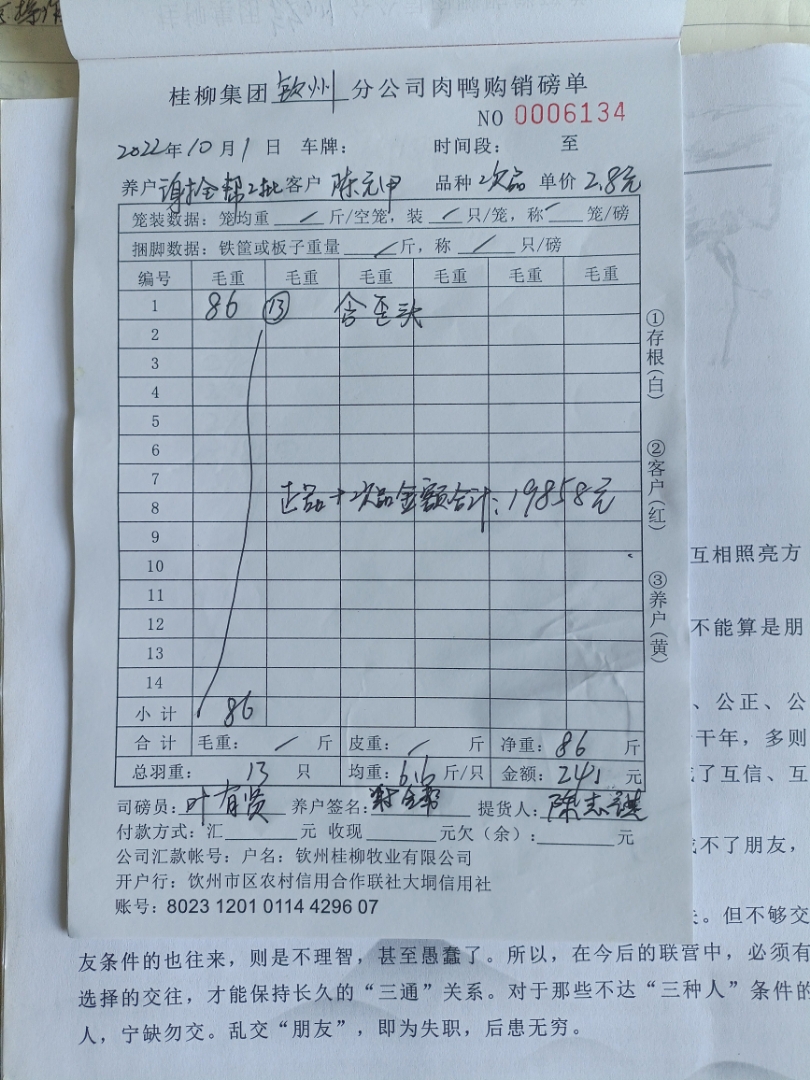 桂柳集团钦州分公司肉鸭购销磅单
NO 0006134
2022年10月1日 车牌: 时间段: 至
养户 谢全帮2批 客户 陈元甲 品种 次品 单价 2.8元
笼装数据: 笼均重 / 斤/空笼, 装 / 只/笼, 称 / 笼/磅
捆脚数据: 铁筐或板子重量 / 斤, 称 / 只/磅
编号 毛重 毛重 毛重 毛重 毛重 毛重
1 86 ⑬ 含歪头
2
3
4
5
6
7
8 正品+次品金额合计: 19858元
9
10
11
12
13
14
小计 86
合计 毛重: / 斤 皮重: / 斤 净重: 86 斤
总羽重: 13 只 均重: 6.6 斤/只 金额: 241 元
司磅员: 叶有贤 养户签名: 谢全帮 提货人: 陈志
付款方式: 汇 元 收现 元欠(余): 元
公司汇款帐号: 户名: 钦州桂柳牧业有限公司
开户行: 钦州市区农村信用合作联社大垌信用社
账号: 8023 1201 0114 4296 07
①存根(白)
②客户(红)
③养户(黄)
互相照亮方
不能算是朋
、公正、公
干年,多则
了互信、互
不了朋友,
。但不够交
友条件的也往来,则是不理智,甚至愚蠢了。所以,在今后的联营中,必须有
选择的交往,才能保持长久的“三通”关系。对于那些不达“三种人”条件的
人,宁缺勿交。乱交“朋友”,即为失职,后患无穷。